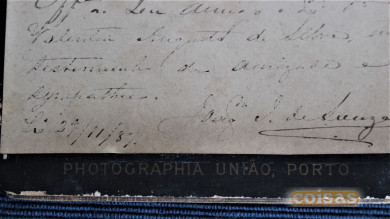 Off.ª ao seu amigo e Sr.
Valentim Augusto da Silva, em
testemunho de amizade e
sympathia.
29/11/87.
João J. de Souza
PHOTOGRAPHIA UNIÃO, PORTO.
coisas